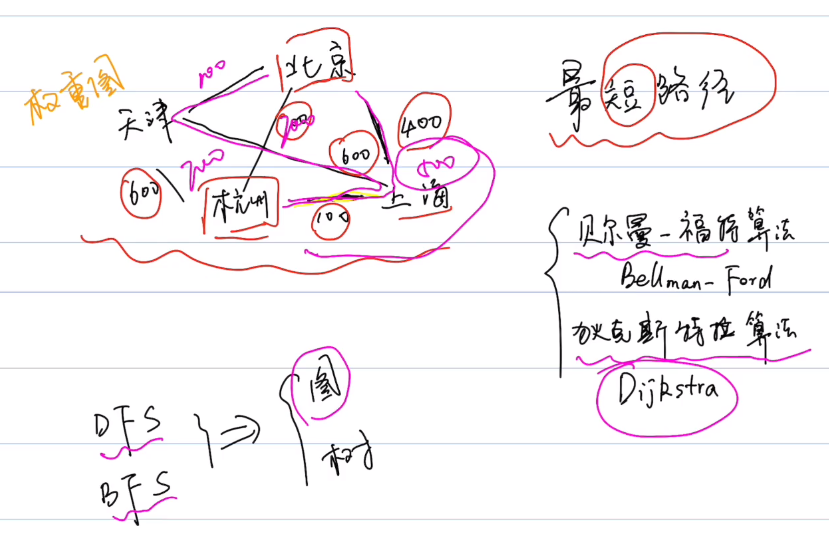 权重图
北京
天津
杭州
上海
600
400
600
100
500
最短路径
贝尔曼-福特算法
Bellman-Ford
狄克斯特拉算法
Dijkstra
DFS
BFS
图
树